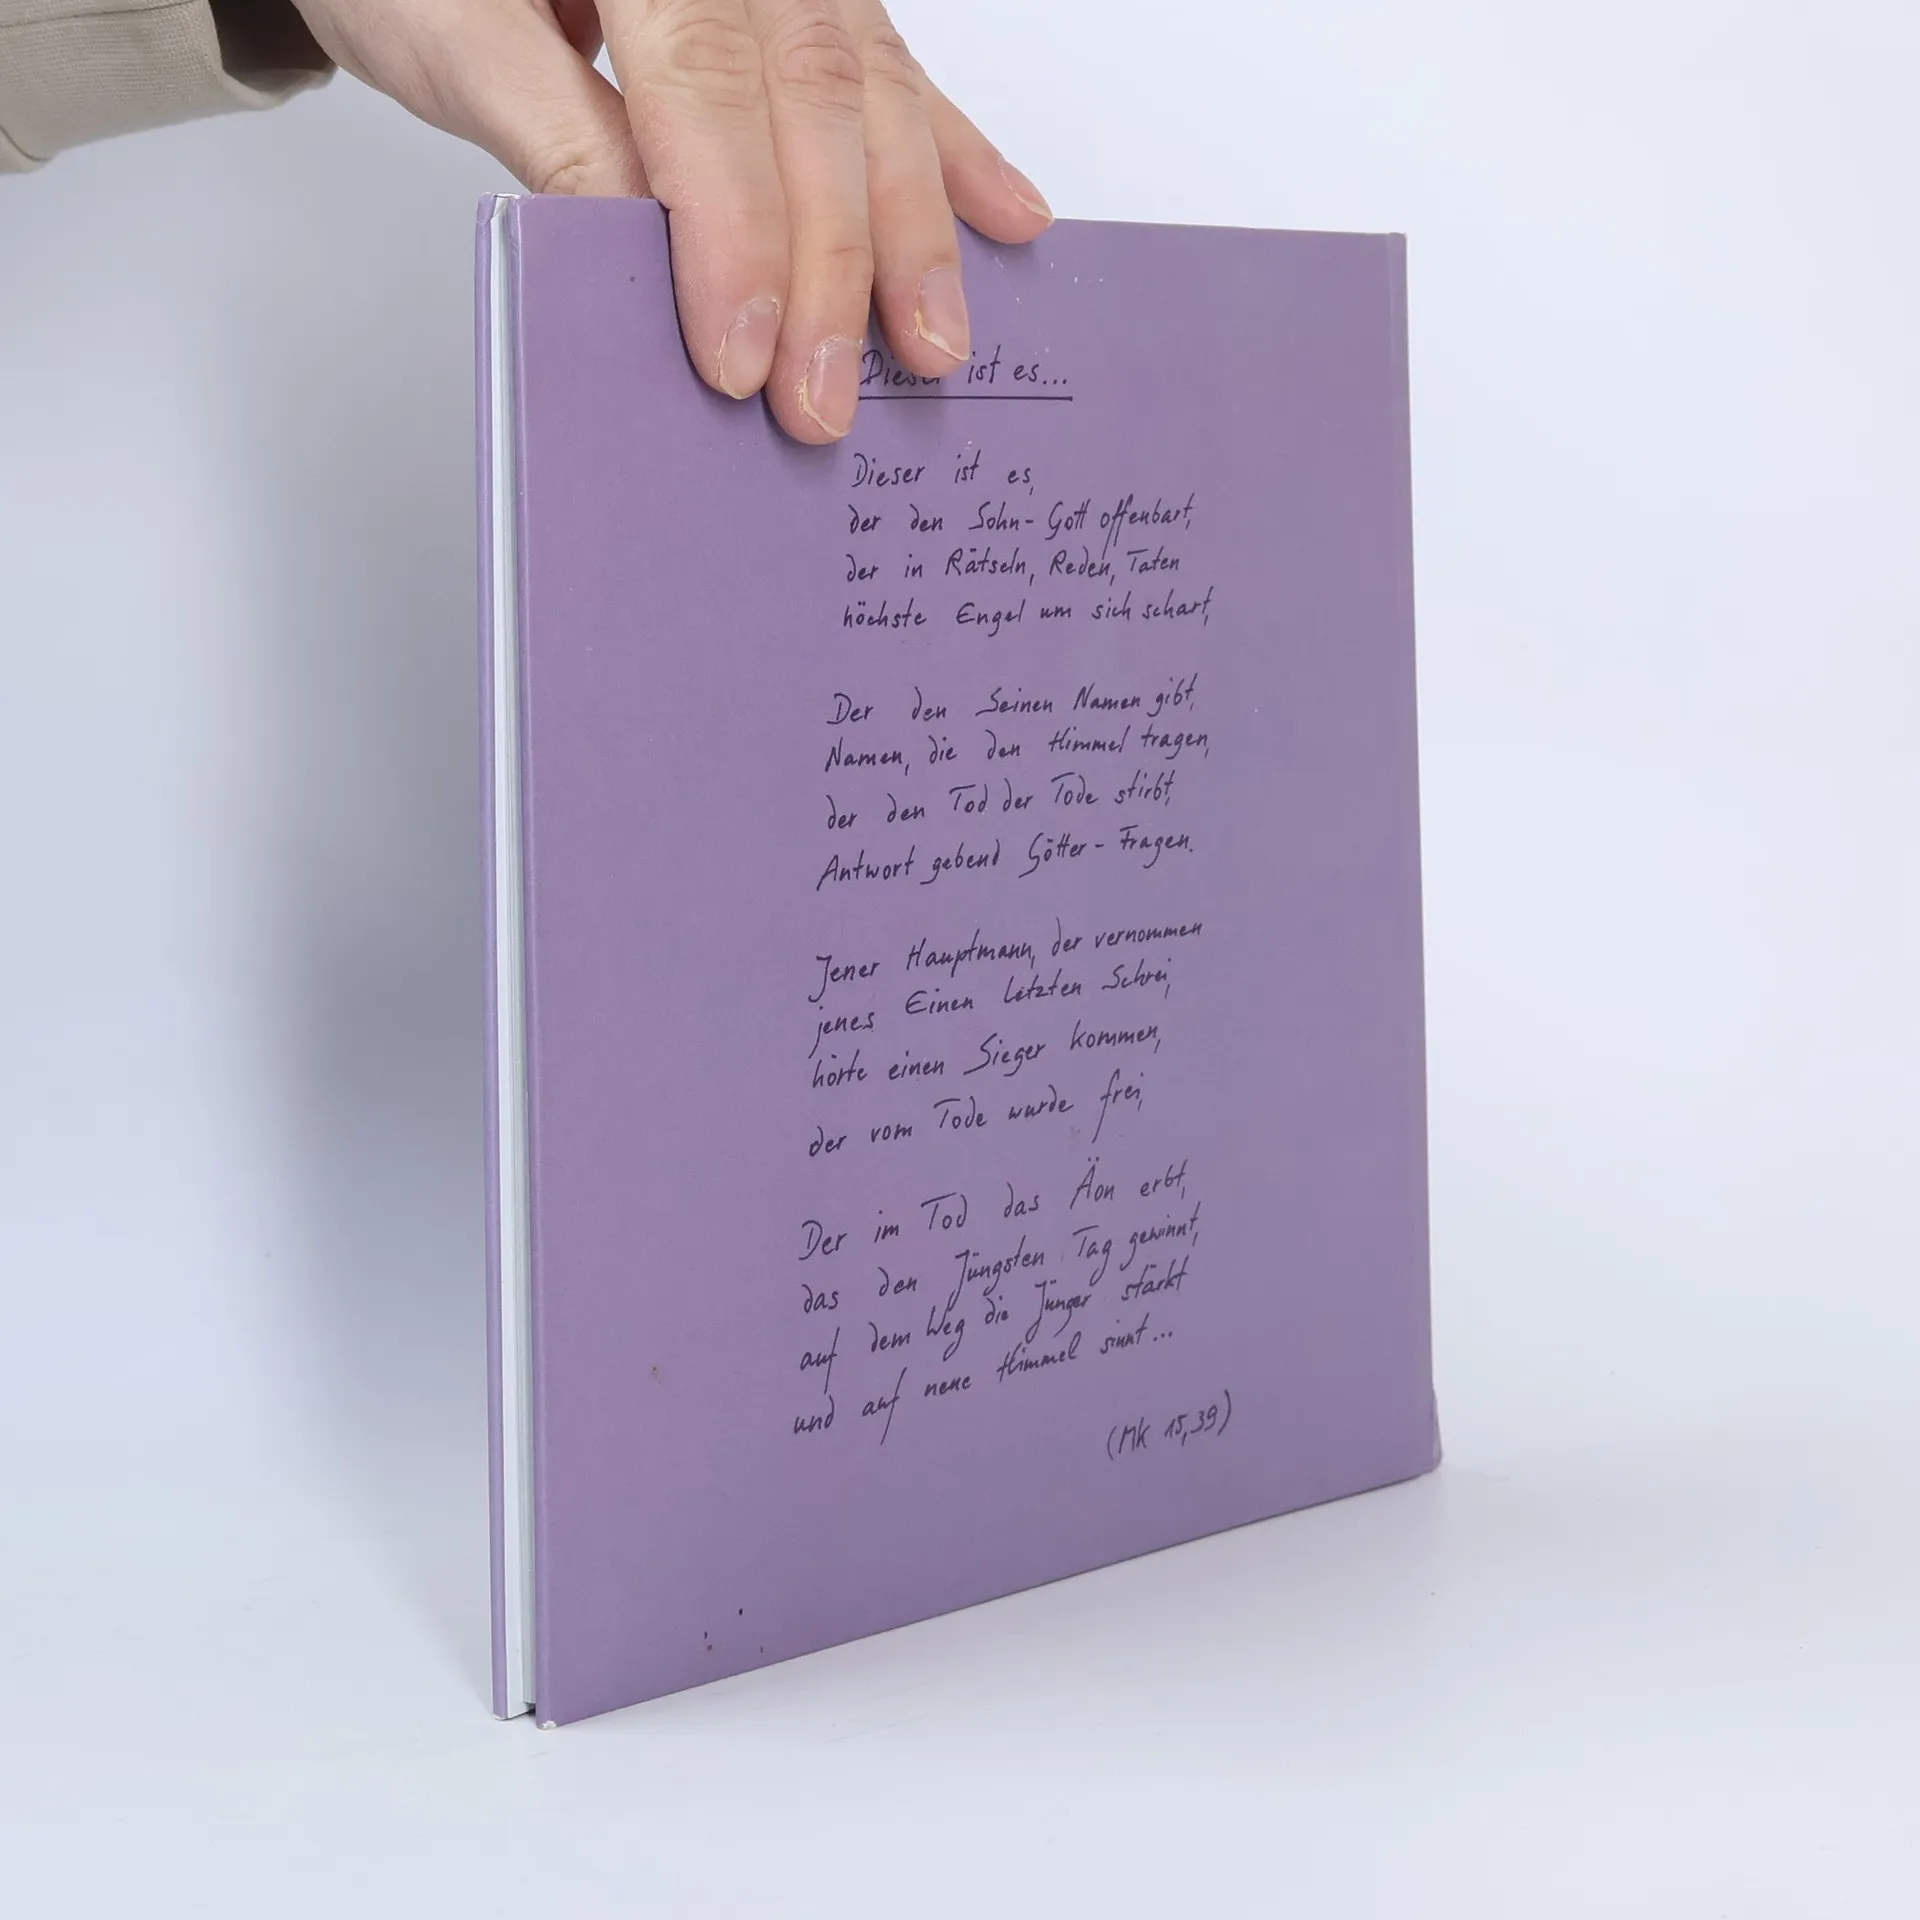 Dieser ist es...
Dieser ist es,
der den Sohn-Gott offenbart,
der in Rätseln, Reden, Taten
höchste Engel um sich schart,
Der den Seinen Namen gibt,
Namen, die den Himmel tragen,
der den Tod der Tode stirbt,
Antwort gebend Götter-Fragen.
Jener Hauptmann, der vernommen
jenes Einen letzten Schrei,
hörte einen Sieger kommen,
der vom Tode wurde frei,
Der im Tod das Äon erbt,
das den Jüngsten Tag gewinnt,
auf dem Weg die Jünger stärkt
und auf neue Himmel sinnt...
(Mk 15,39)